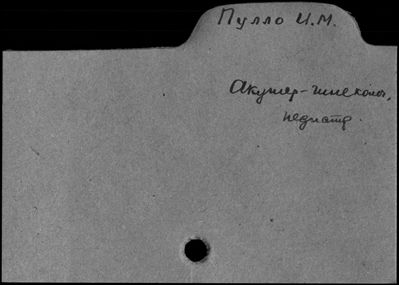 Пулло И.М.
Акушер-гинеколог,
педиатр.